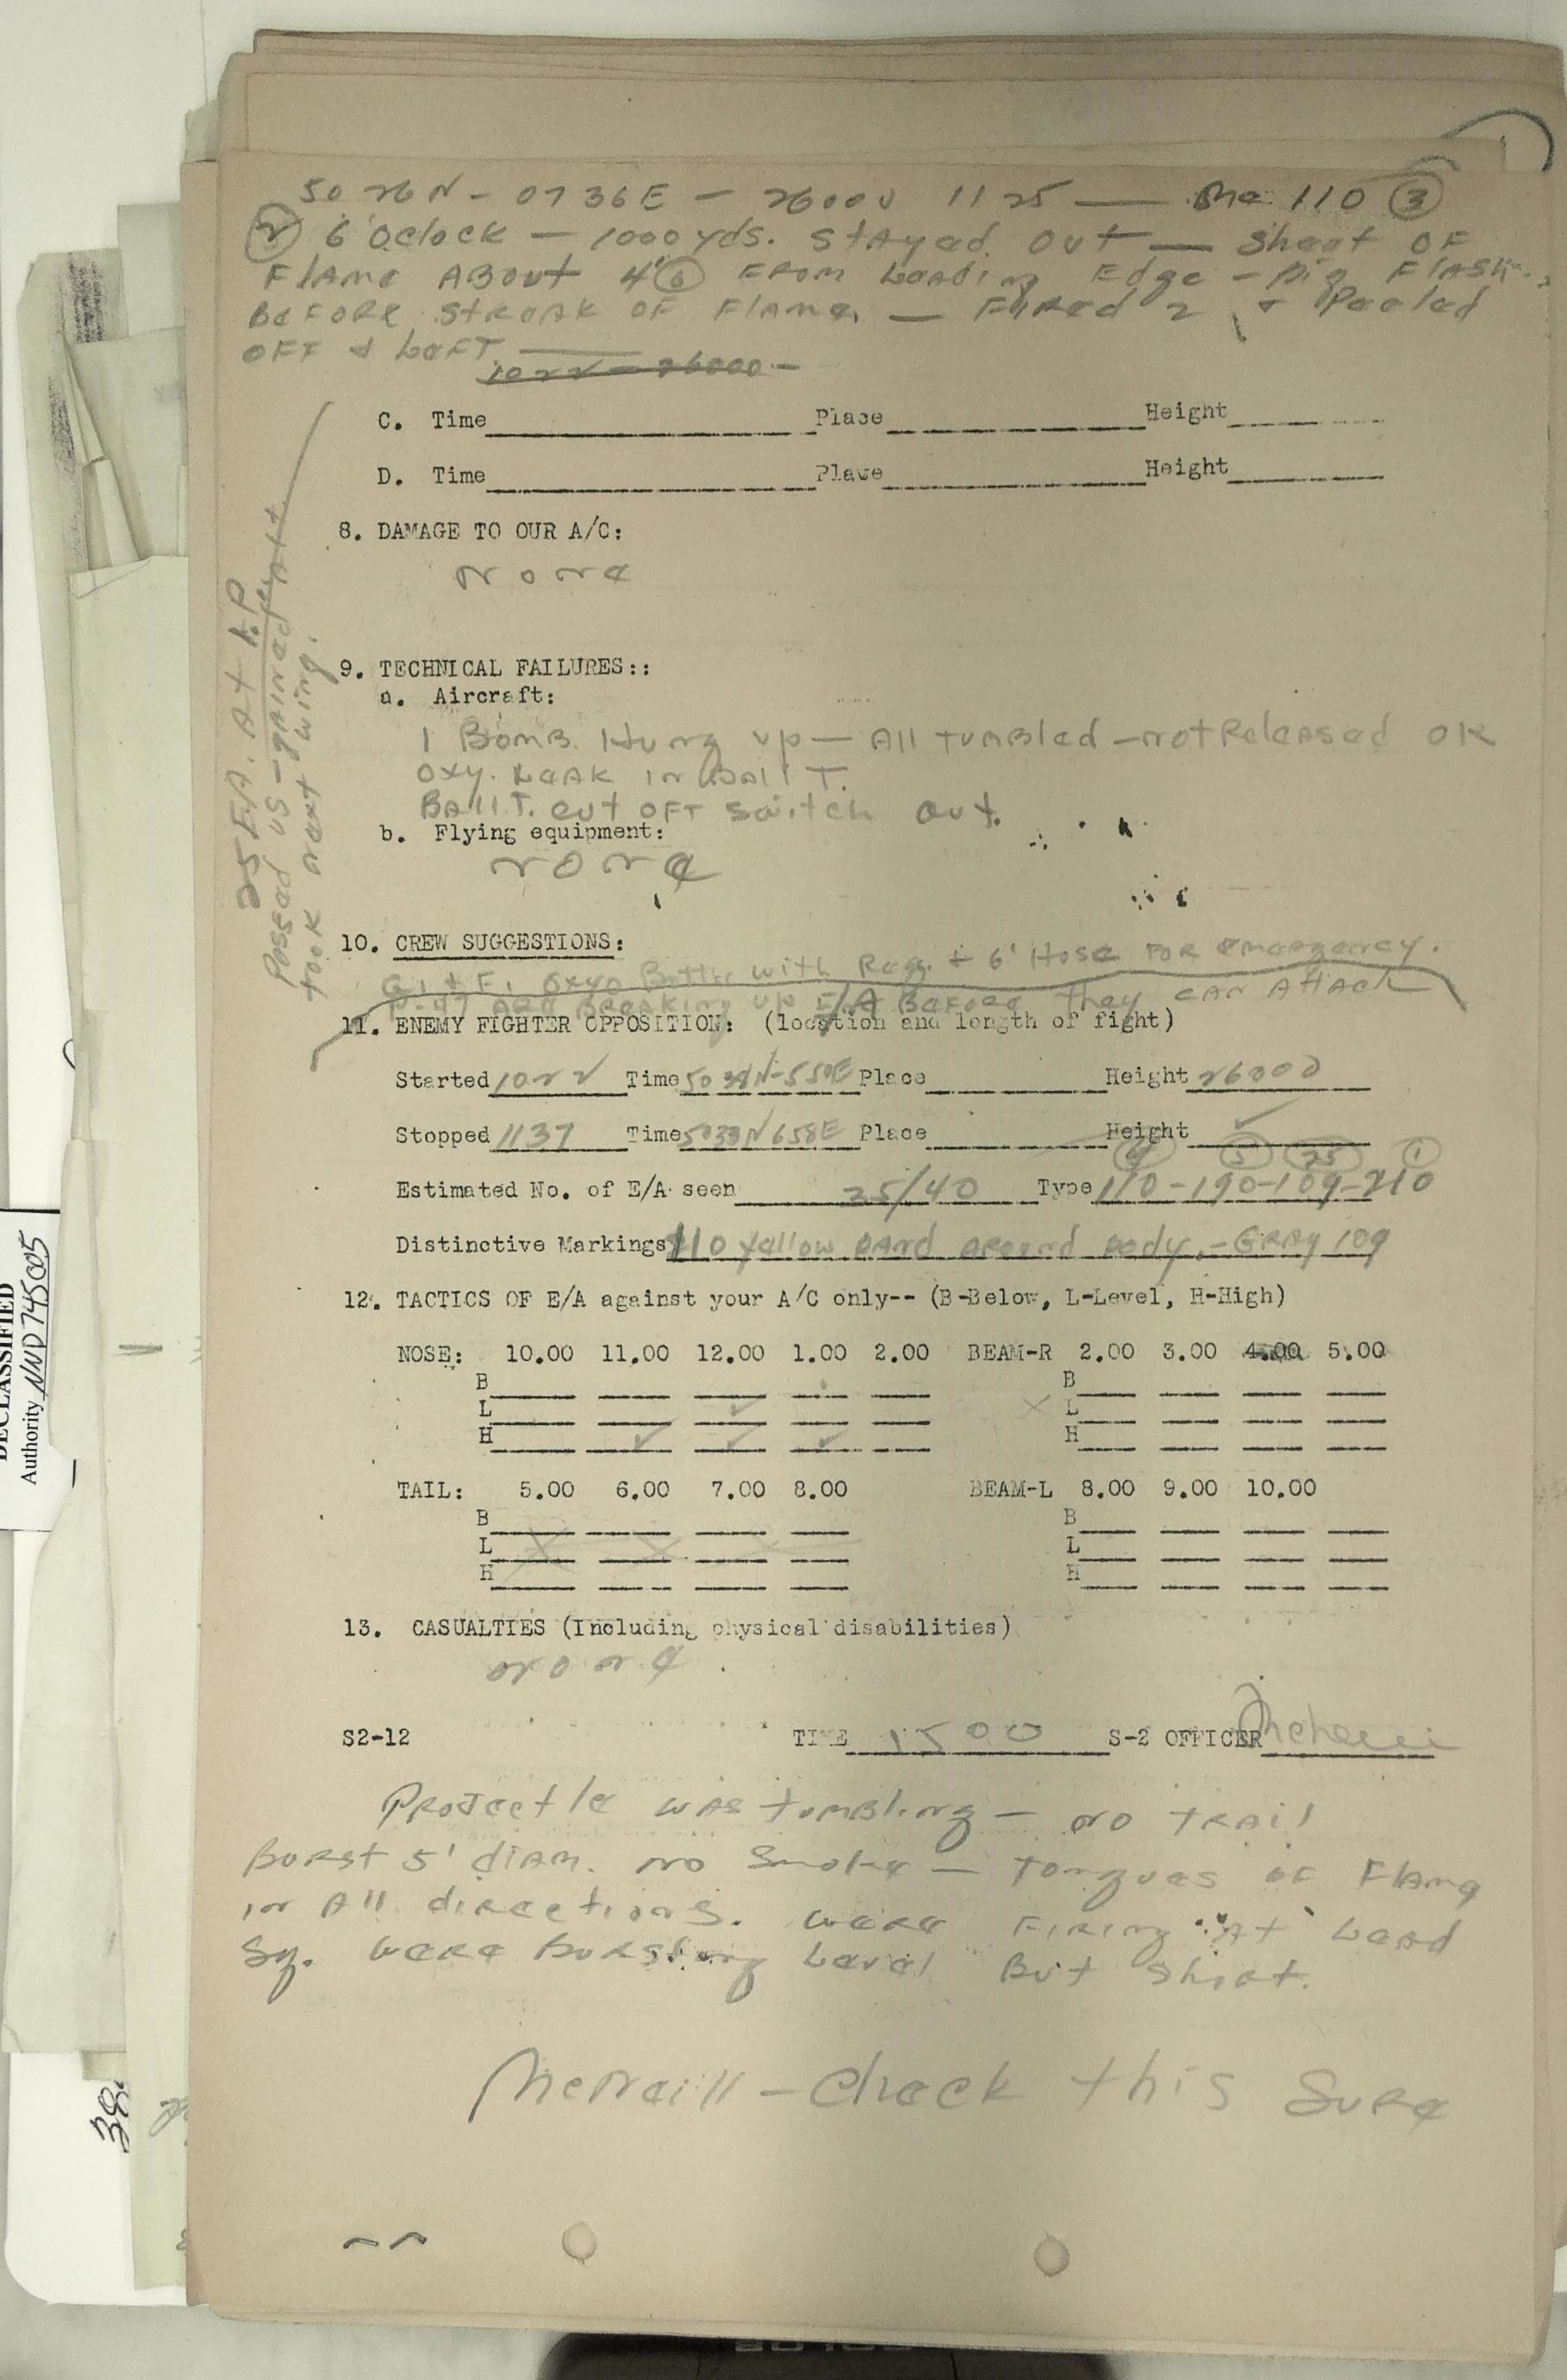 50 26N - 07 36E - 26000 11 25 — Me 110 (3)
(2) 6 Oclock - 1000 yds. Stayed Out — Sheet OF
Flame About 4' From Leading Edge - Big Flash
BeFore Streak OF Flame - Fired 2 & Peeled
OFF & LeFT.
1022 - 26000 -
C. Time Place Height
D. Time Place Height
8. DAMAGE TO OUR A/C:
None
25 E/A. At I.P
Passed us - gained
took next wing.
9. TECHNICAL FAILURES::
a. Aircraft:
1 Bomb. Hung up - All tumbled - not Released OK
Oxy. Leak in Ball T.
Ball T. cut OFF switch out.
b. Flying equipment:
None
10. CREW SUGGESTIONS:
Oxyo Bottle with Reg. + 6' Hose For emergency.
P-47 Are Breaking up E/A Before they can Attack
11. ENEMY FIGHTER OPPOSITION: (location and length of fight)
Started 1022 Time 50 38N-550E Place Height 26000
Stopped 1137 Time 5033N 658E Place Height ✓
(5) (25) (1)
Estimated No. of E/A seen 25/40 Type 110-190-109-210
Distinctive Markings 110 Yellow Band Around Body - Gray 109
12. TACTICS OF E/A against your A/C only-- (B-Below, L-Level, H-High)
NOSE: 10.00 11.00 12.00 1.00 2.00 BEAM-R 2.00 3.00 4.00 5.00
B B
L ✓ X L
H ✓ ✓ ✓ H
TAIL: 5.00 6.00 7.00 8.00 BEAM-L 8.00 9.00 10.00
B B
L X X X L
H H
13. CASUALTIES (Including physical disabilities)
None
S2-12 TIME 1500 S-2 OFFICER
Projectle was tumbling - no trail
Burst 5' diam. No Smoke - Tongues OF Flame
in All directions. Were Firing At Lead
Sq. Were Bursting Level But Short.
McNeill - Check this Sure
DECLASSIFIED
Authority NND 745005
38